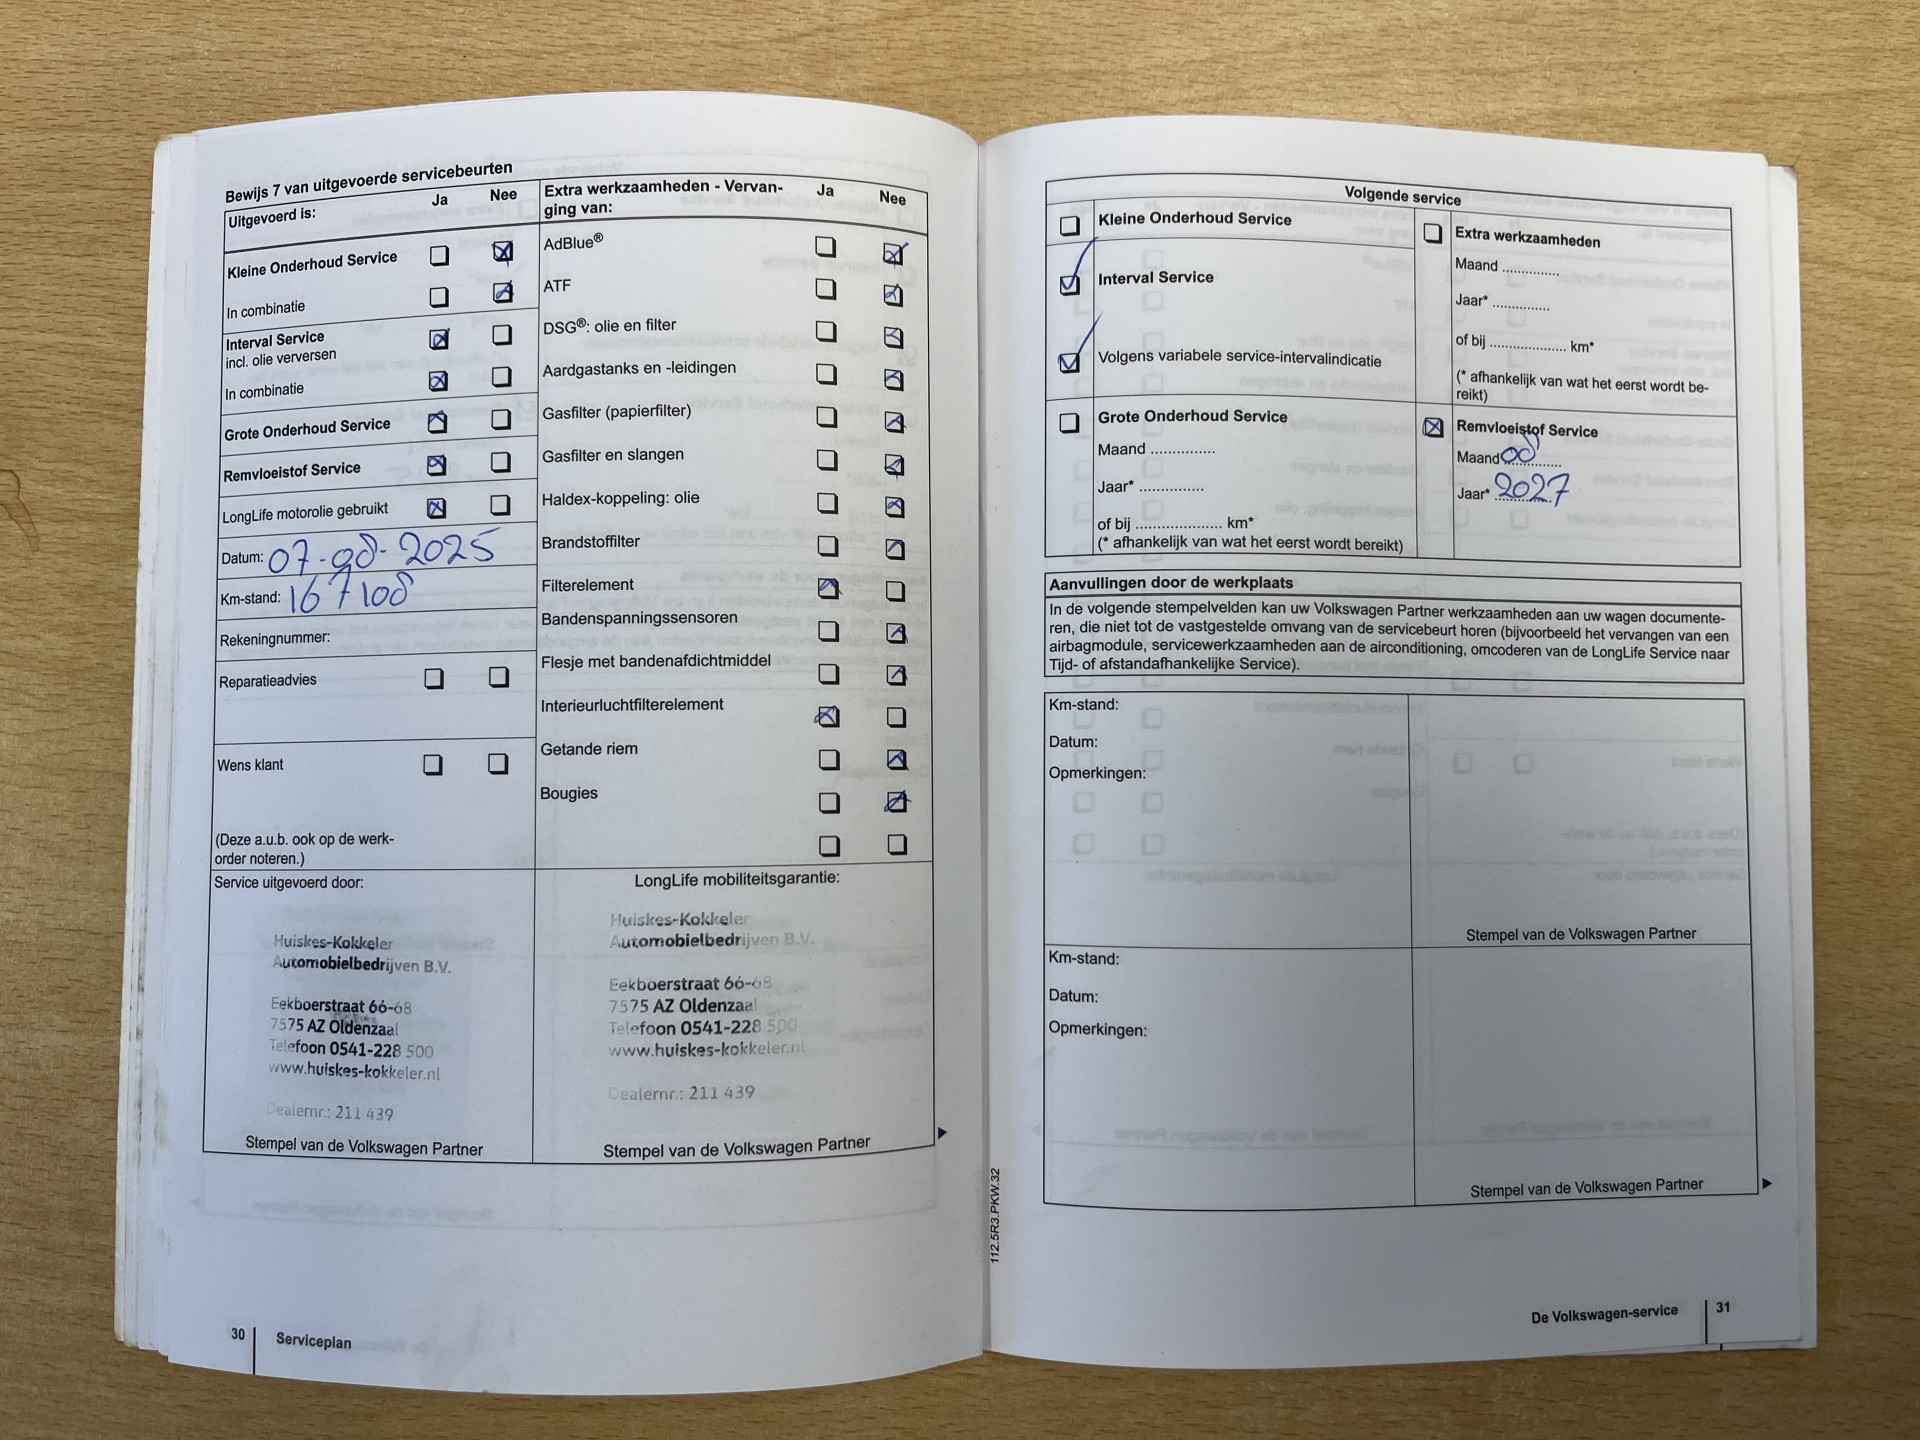 Bewijs 7 van uitgevoerde servicebeurten
Uitgevoerd is:
Ja
Nee
Kleine Onderhoud Service
In combinatie
Interval Service
incl. olie verversen
In combinatie
Grote Onderhoud Service
Remvloeistof Service
LongLife motorolie gebruikt
Datum: 07-08-2025
Km-stand: 167108
Rekeningnummer:
Reparatieadvies
Wens klant
(Deze a.u.b. ook op de werk-
order noteren.)
Extra werkzaamheden - Vervan-
ging van:
Ja
Nee
AdBlue®
ATF
DSG®: olie en filter
Aardgastanks en -leidingen
Gasfilter (papierfilter)
Gasfilter en slangen
Haldex-koppeling: olie
Brandstoffilter
Filterelement
Bandenspanningssensoren
Flesje met bandenafdichtmiddel
Interieurluchtfilterelement
Getande riem
Bougies
Service uitgevoerd door:
Huiskes-Kokkeler
Automobielbedrijven B.V.
Eekboerstraat 66-68
7575 AZ Oldenzaal
Telefoon 0541-228 500
www.huiskes-kokkeler.nl
Dealernr.: 211 439
Stempel van de Volkswagen Partner
LongLife mobiliteitsgarantie:
Huiskes-Kokkeler
Automobielbedrijven B.V.
Eekboerstraat 66-68
7575 AZ Oldenzaal
Telefoon 0541-228 500
www.huiskes-kokkeler.nl
Dealernr.: 211 439
Stempel van de Volkswagen Partner
30
Serviceplan
112.5R3.PKW.32
Volgende service
Kleine Onderhoud Service
Interval Service
Volgens variabele service-intervalindicatie
Grote Onderhoud Service
Maand ...............
Jaar* ...............
of bij .................... km*
(* afhankelijk van wat het eerst wordt bereikt)
Extra werkzaamheden
Maand .............
Jaar* .............
of bij .................. km*
(* afhankelijk van wat het eerst wordt be-
reikt)
Remvloeistof Service
Maand 08
Jaar* 2027
Aanvullingen door de werkplaats
In de volgende stempelvelden kan uw Volkswagen Partner werkzaamheden aan uw wagen documente-
ren, die niet tot de vastgestelde omvang van de servicebeurt horen (bijvoorbeeld het vervangen van een
airbagmodule, servicewerkzaamheden aan de airconditioning, omcoderen van de LongLife Service naar
Tijd- of afstandafhankelijke Service).
Km-stand:
Datum:
Opmerkingen:
Stempel van de Volkswagen Partner
Km-stand:
Datum:
Opmerkingen:
Stempel van de Volkswagen Partner
De Volkswagen-service
31